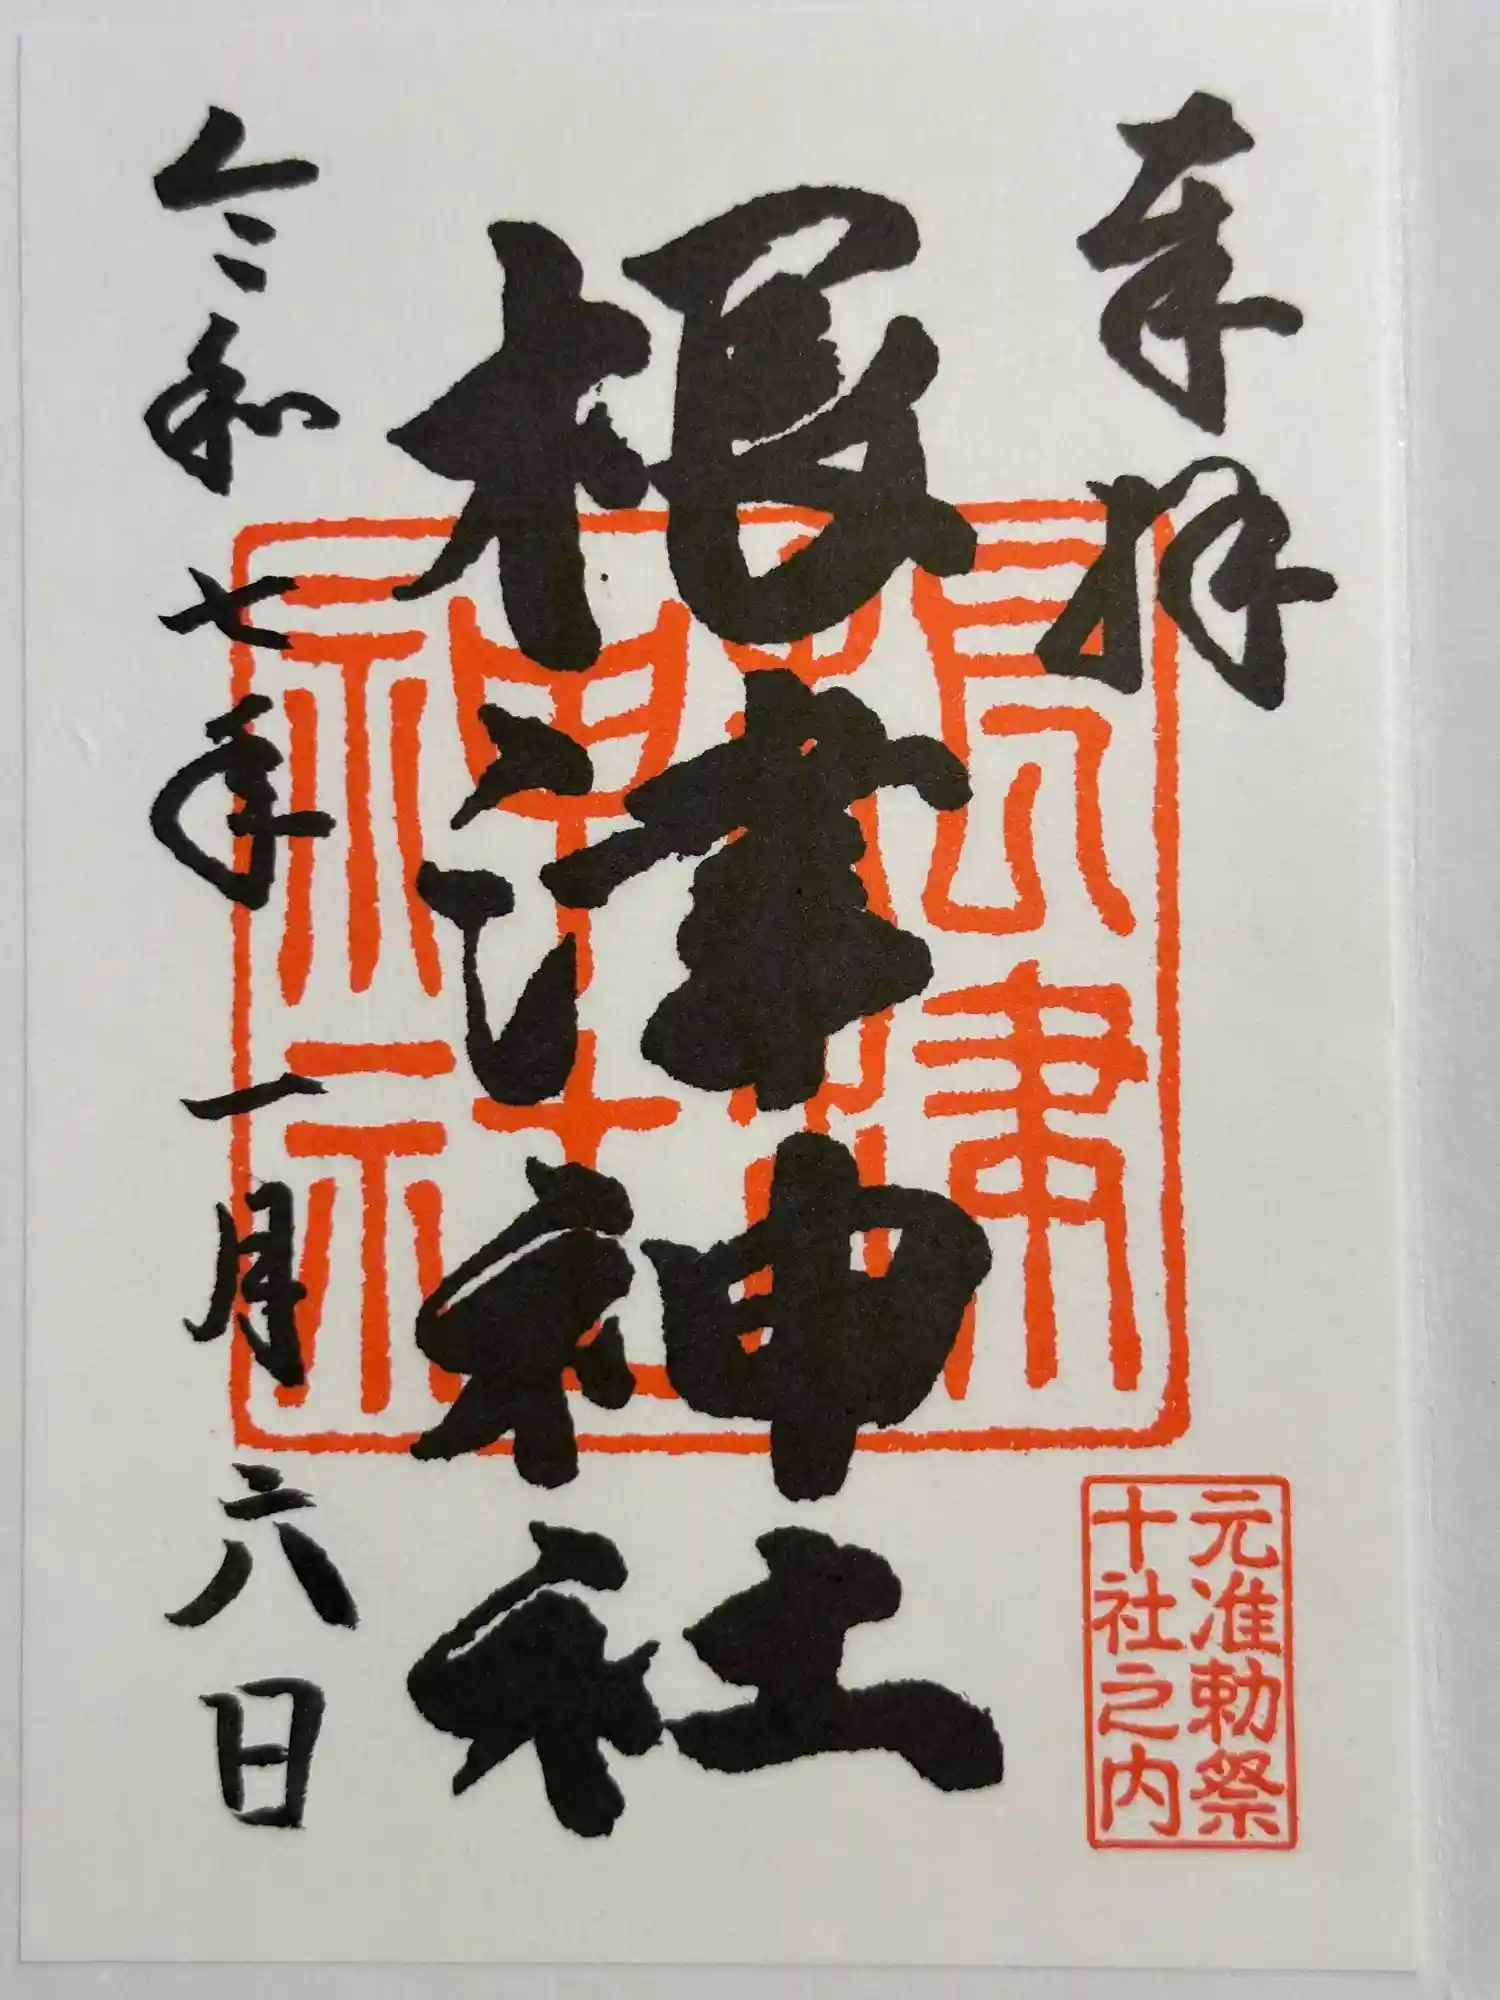 奉拝
元准勅祭
十社之内
根津神社
根津神社
令和七年一月六日